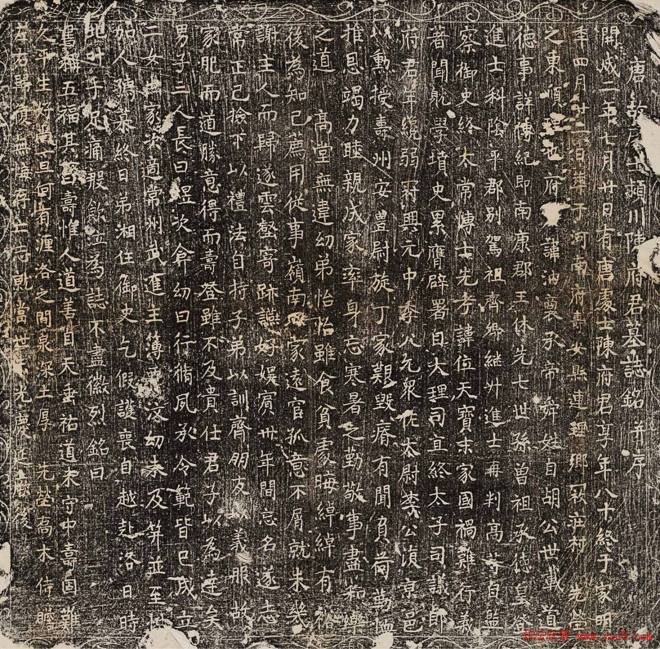 唐故處士潁川陳府君墓誌銘并序
開成二年七月廿日有唐處士陳府君享年八十終于家明
年四月十二日葬于河南府壽安縣連理鄉 莊村 先塋
之東順 也府君諱油襄 帝舜姓自胡公世載道
德事詳傳紀即南康郡王休先七世孫曾祖承德皇
進士科陰平郡別駕祖齊卿繼升進士再判高等自監
察御史終太常博士先考諱位天寶末家國禍難行義
著聞 學墳史累應辟署日大理司直終太子司議郎
府君年繞弱冠興元中 八九眾 太尉李公復京邑
以勳授壽州安豐尉旋丁家艱毀瘠有聞負荷勤恤
推恩竭力睦親成家率身忘寒暑之勤敬事盡和樂
之道 高堂無違幼弟怡怡雖食貧處晦綽綽有裕
後為知己薦用從事嶺南 家遠官孤意不屑就未幾
謝主人而歸遂雲壑寄跡 好娛賓卅年間忘名遂志
常 己撿下以禮法自持子弟以訓齊朋友以義服故
家肥而道勝意得而壽登雖不及貴仕君子以為達矣
男子三人長曰 次 幼曰行脩夙 令範皆已成立
二女 家 適常州武進主簿 沒幼未及笄並至性
如人 慕終日弟湘任御史乞假護喪自越赴洛日時
號叶子 痛 飲泣為誌不盡徽烈銘曰
書稱五福其 壽惟人道善自天垂祐道末守中壽固難
久 生 何有瀍洛之間泉深土厚 先塋高木佇瞻
左右歸 無悔存亡 當世 先慶延 後